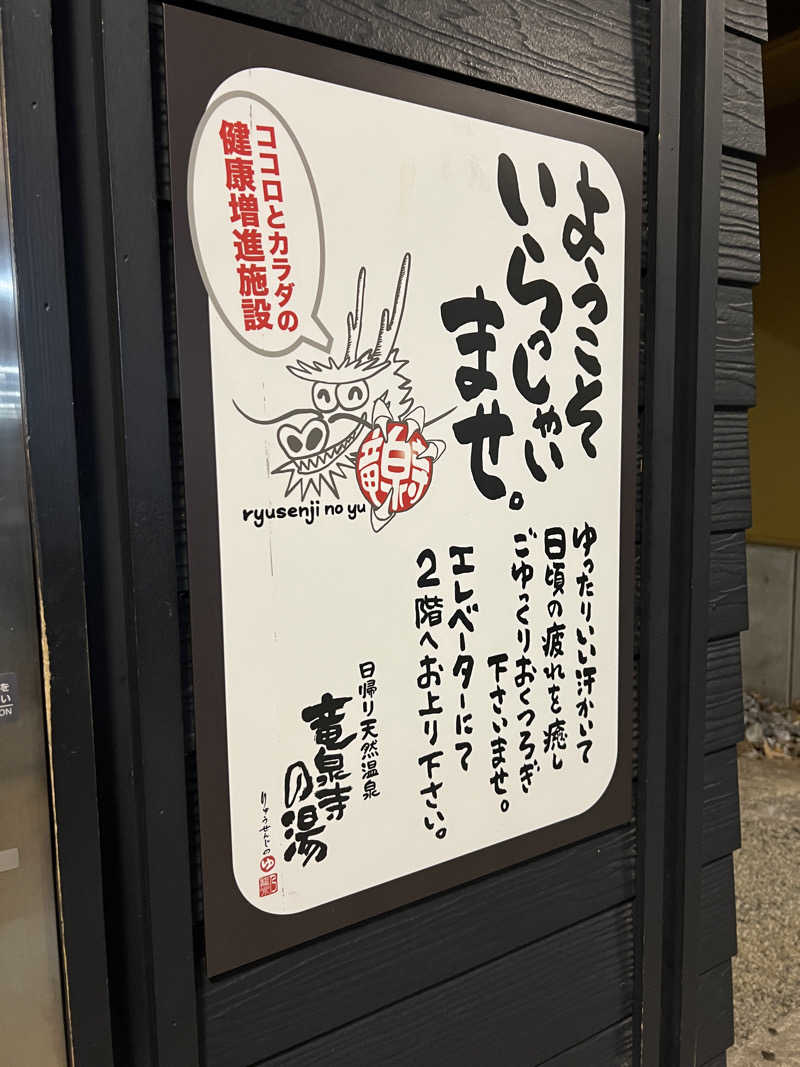 ようこそ
いらっしゃい
ませ。
ココロとカラダの
健康増進施設
ryusenji no yu
ゆったりいい汗かいて
日頃の疲れを癒し
ごゆっくりおくつろぎ
下さいませ。
エレベーターにて
2階へお上り下さい。
日帰り天然温泉
竜泉寺
の湯
りゅうせんじの
ゆ